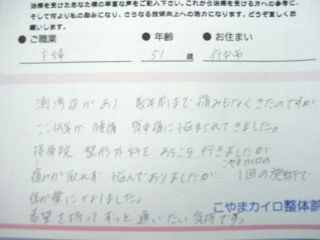 治療を受けたあなた様の率直な声をご記入下さい。これから治療を受ける方への参考に、
そして何より私の励みになり、さらなる技術向上への活力になります。どうぞ宜しくお
願いします。
●ご職業 ●年齢 ●お住まい
主婦 51 歳
側湾症があり 数年前まで痛みもなくきたのですが
ここ何年か 腰痛 背中痛に悩まされてきました。
接骨院 整形外科を あちこち 行きましたが
こやまカイロの
痛みが取れず 悩んでおりましたが 1回の発術で
体が楽になりました。
希望を持って ずっと 通いたい気持です。
こやまカイロ整体院